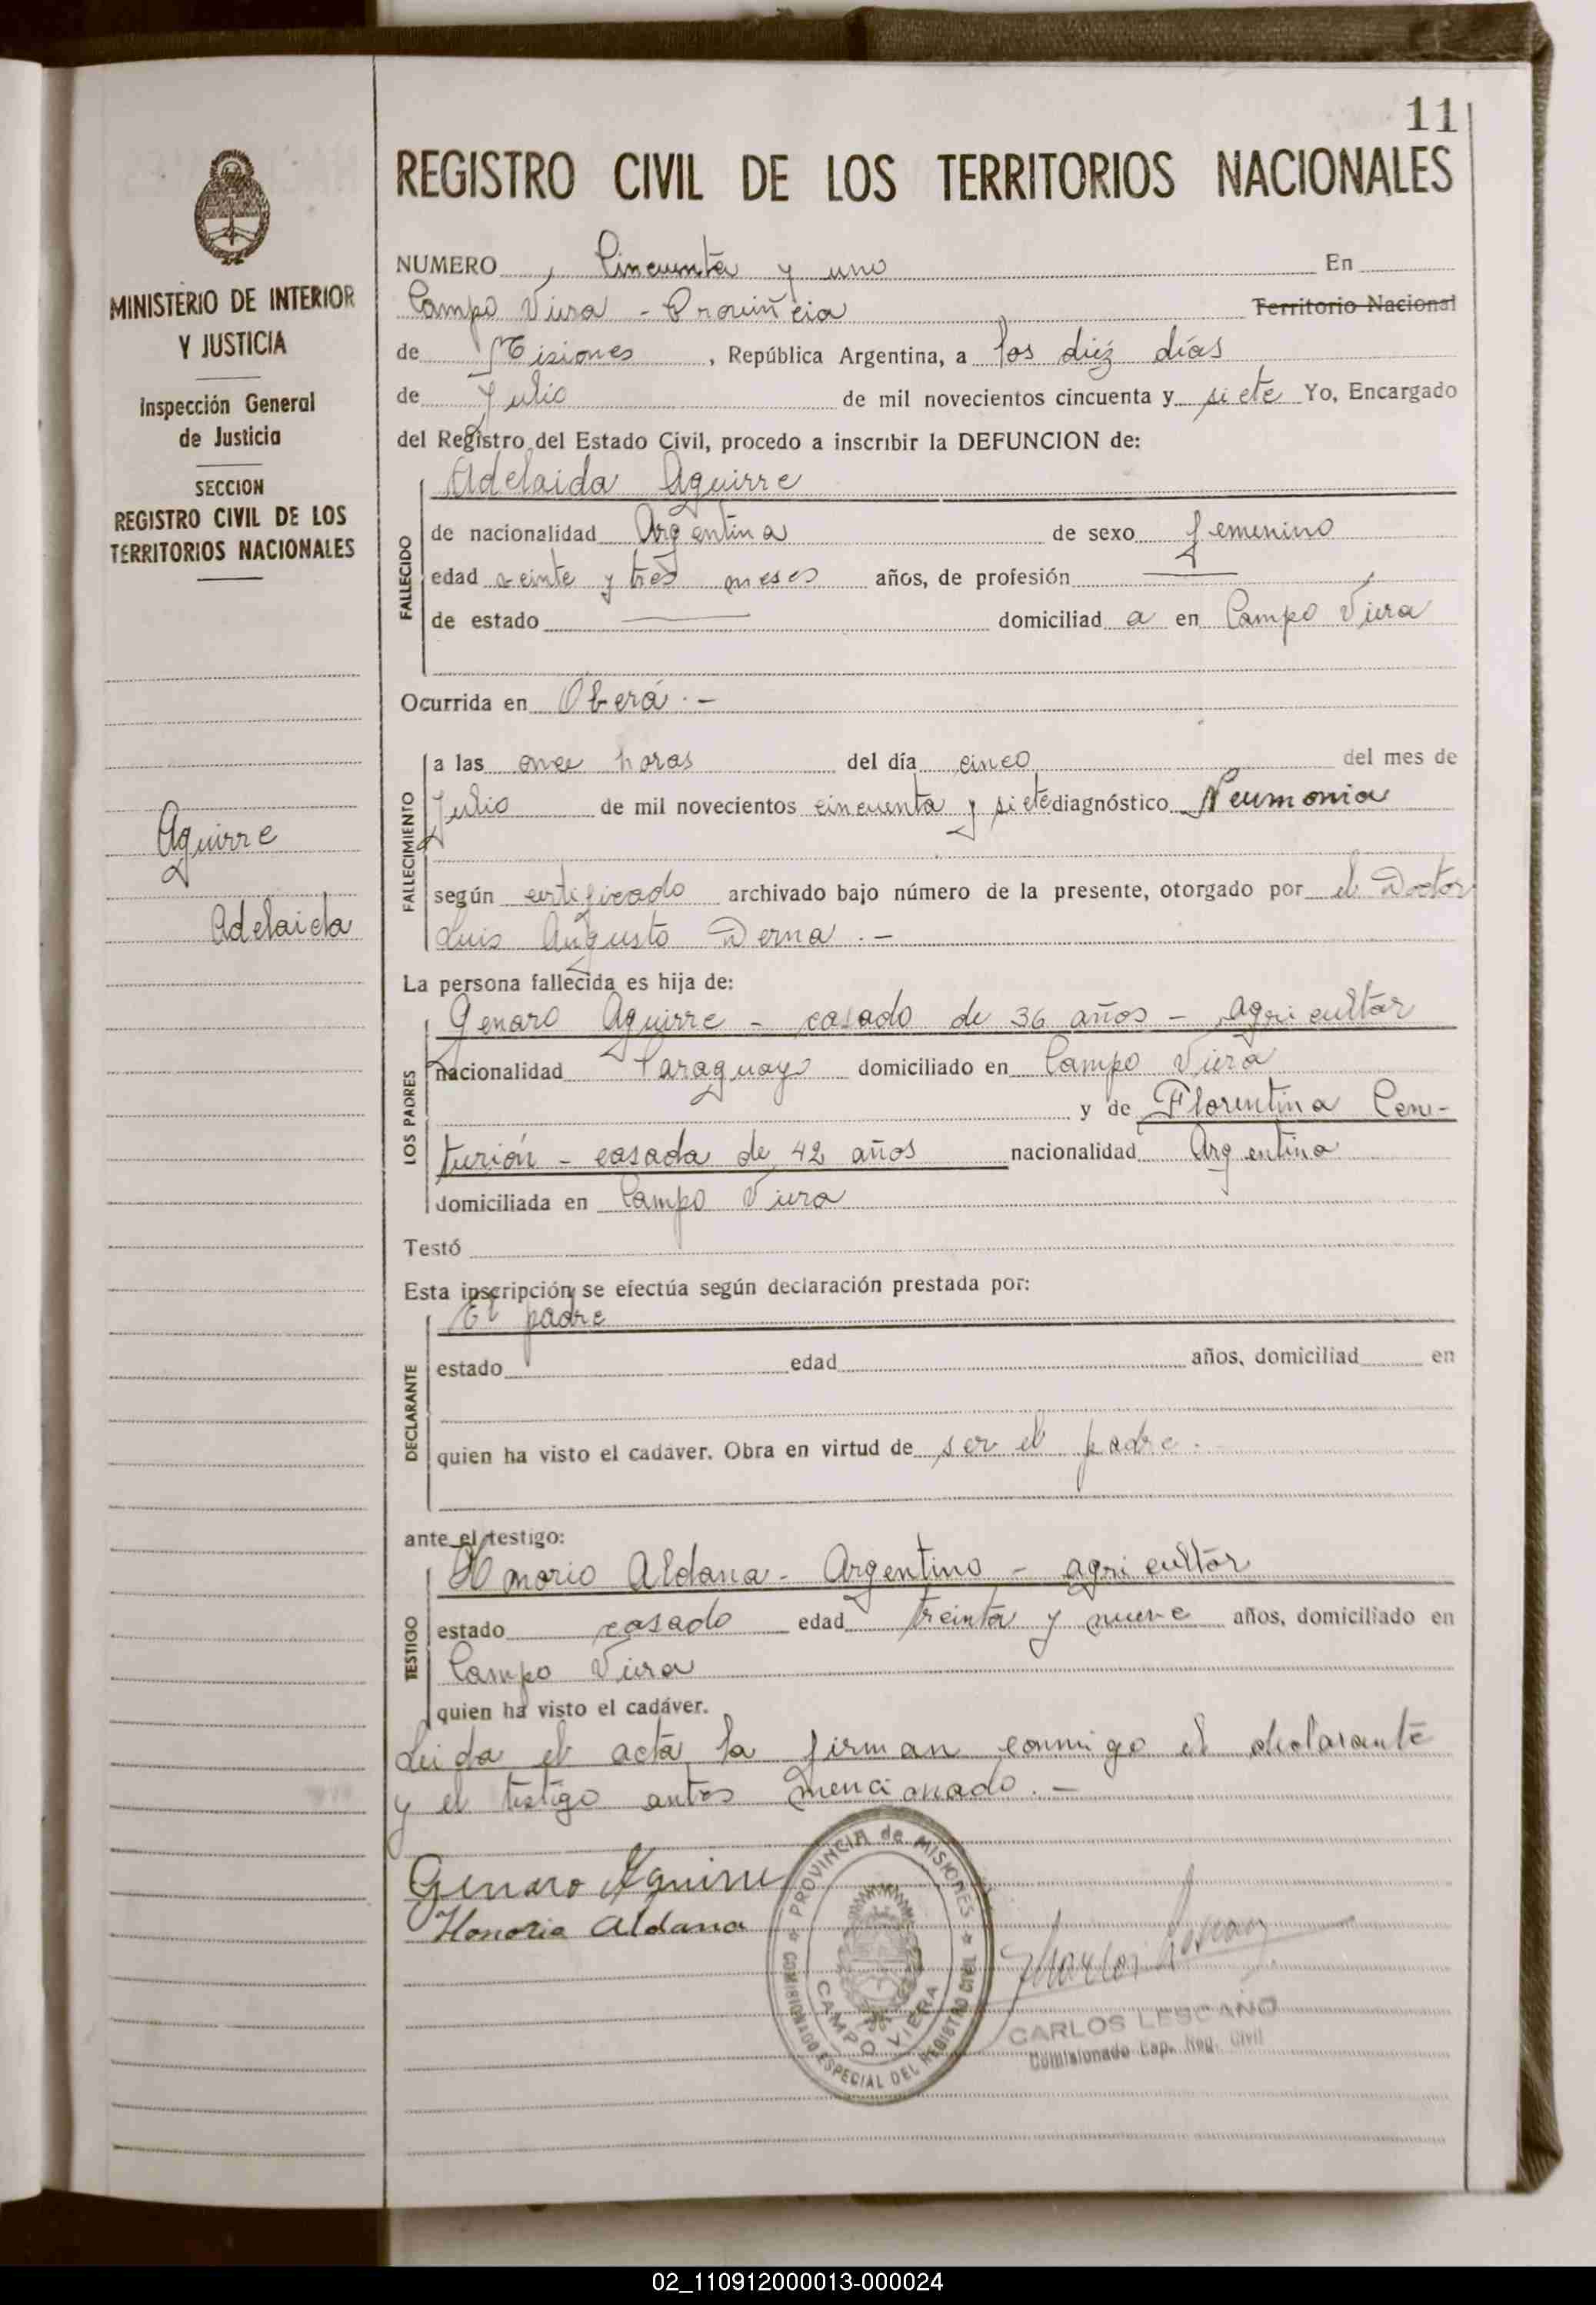 11
REGISTRO CIVIL DE LOS TERRITORIOS NACIONALES
MINISTERIO DE INTERIOR
Y JUSTICIA
Inspección General
de Justicia
SECCION
REGISTRO CIVIL DE LOS
TERRITORIOS NACIONALES
Aguirre
Adelaida
NUMERO Cincuenta y uno En
Campo Viera - Provincia Territorio Nacional
de Misiones, República Argentina, a los diez días
de Julio de mil novecientos cincuenta y siete Yo, Encargado
del Registro del Estado Civil, procedo a inscribir la DEFUNCION de:
FALLECIDO
Adelaida Aguirre
de nacionalidad Argentina de sexo femenino
edad veinte y tres meses años, de profesión
de estado domiciliad a en Campo Viera
Ocurrida en Oberá . -
FALLECIMIENTO
a las once horas del día cinco del mes de
Julio de mil novecientos cincuenta y siete diagnóstico Neumonia
según certificado archivado bajo número de la presente, otorgado por el Doctor
Luis Augusto Derna . -
La persona fallecida es hija de:
LOS PADRES
Genaro Aguirre - casado de 36 años - agricultor
nacionalidad Paraguayo domiciliado en Campo Viera
y de Florentina Cen-
turión - casada de 42 años nacionalidad Argentina
domiciliada en Campo Viera
Testó
Esta inscripción se efectúa según declaración prestada por:
DECLARANTE
El padre
estado edad años, domiciliad en
quien ha visto el cadáver. Obra en virtud de ser el padre.
ante el testigo:
TESTIGO
Honorio Aldana - Argentino - agricultor
estado casado edad treinta y nueve años, domiciliado en
Campo Viera
quien ha visto el cadáver.
Leida el acta la firman conmigo el declarante
y el testigo antes mencionado. -
Genaro Aguirre
Honorio Aldana
PROVINCIA de MISIONES
COMISIONADO ESPECIAL DEL REGISTRO CIVIL
CAMPO VIERA
CARLOS LESCANO
Comisionado Esp. Reg. Civil
02_110912000013-000024